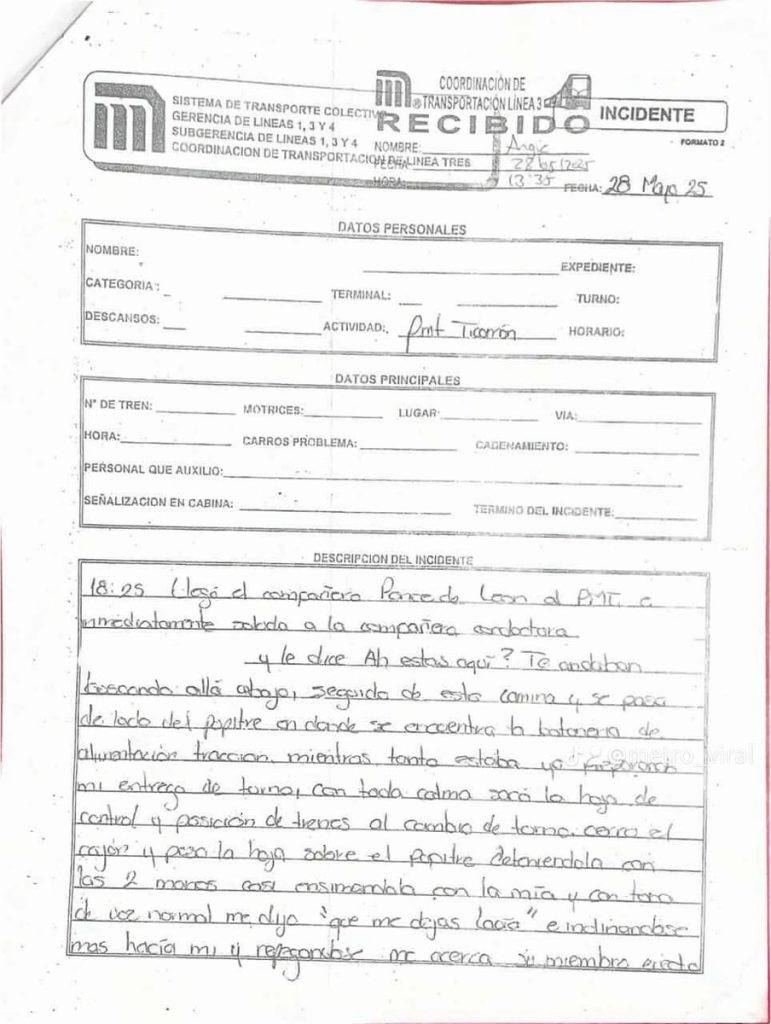 COORDINACIÓN DE
® TRANSPORTACIÓN LÍNEA 3
RECIBIDO
SISTEMA DE TRANSPORTE COLECTIVO
GERENCIA DE LINEAS 1, 3 Y 4
SUBGERENCIA DE LINEAS 1, 3 Y 4
COORDINACION DE TRANSPORTACION DE LINEA TRES
INCIDENTE
FORMATO 2
NOMBRE: Angie
FECHA: 28/05/2025
HORA: 13:35
FECHA: 28 Mayo 25
DATOS PERSONALES
NOMBRE: EXPEDIENTE:
CATEGORIA: TERMINAL: TURNO:
DESCANSOS: ACTIVIDAD: Pmt Ticomán HORARIO:
DATOS PRINCIPALES
N° DE TREN: MOTRICES: LUGAR: VIA:
HORA: CARROS PROBLEMA: CADENAMIENTO:
PERSONAL QUE AUXILIO:
SEÑALIZACION EN CABINA: TERMINO DEL INCIDENTE:
DESCRIPCION DEL INCIDENTE
18:25 Llegó el compañero Ponce de Leon al PMT. e
inmediatamente saluda a la compañera conductora
y le dice Ah estas aquí? Te andaban
buscando allá abajo, seguido de esto camina y se pasa
de lado del pupitre en donde se encuentra la botonera de
alimentación tracción. mientras tanto estaba yo
mi entrega de turno, con toda calma sacó la hoja de
control y posición de trenes al cambio de turno. cerro el
cajón y puso la hoja sobre el pupitre deteniendola con
las 2 manos casi con la mía y con tono
de voz normal me dijo "que me dejas lacía" e inclinandose
mas hacía mi y repegandose me acerca su miembro erecto
@metro_viral